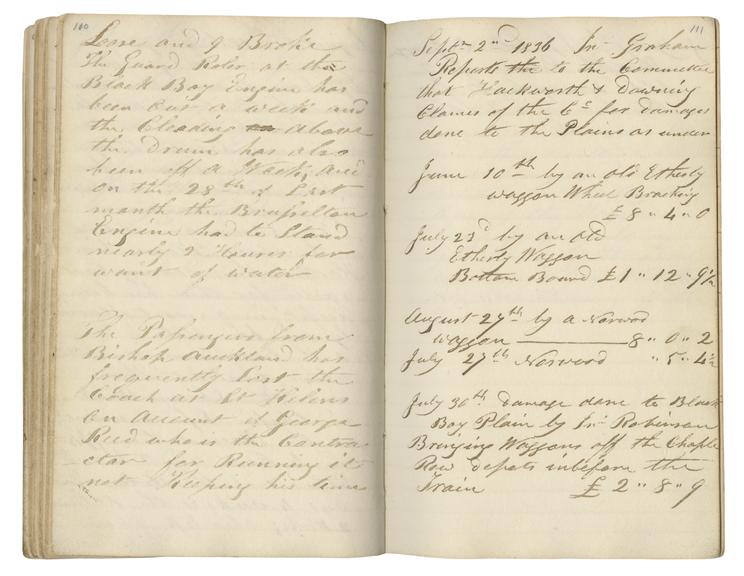 110
Loose and 9 Broke
The Guard Roler at the
Black Boy Engine has
been out a week and
the Cleading above
the Drum has also
been off a Week, and
on the 28th of Last
month the Brusselton
Engine had to Stand
nearly 2 Hours for
want of water
The Passengers from
Bishop Auckland has
frequently Lost the
Coach at St Helens
on account of George
Reed who is the Contra
ctor for Running it
not Keeping his time
111
Septr 2nd 1836 Jno Graham
Reports the to the Committee
that Hackworth & Downing
Clames of the Co for Damages
done to the Plains as under
June 10th by an old Etherly
waggon Wheel Breaking
£ 8 " 4 " 0
July 23d by an old
Etherly Waggon
Bottom Bound £1 " 12 " 9½
August 27th by a Norwood
waggon 8 " 0 " 2
July 27th Norwood " 5 " 4½
July 30th Damage done to Black
Boy Plain by Jno Robinson
Bringing Waggons off the Chaple
Row Depots inbefore the
Train £ 2 " 8 " 9